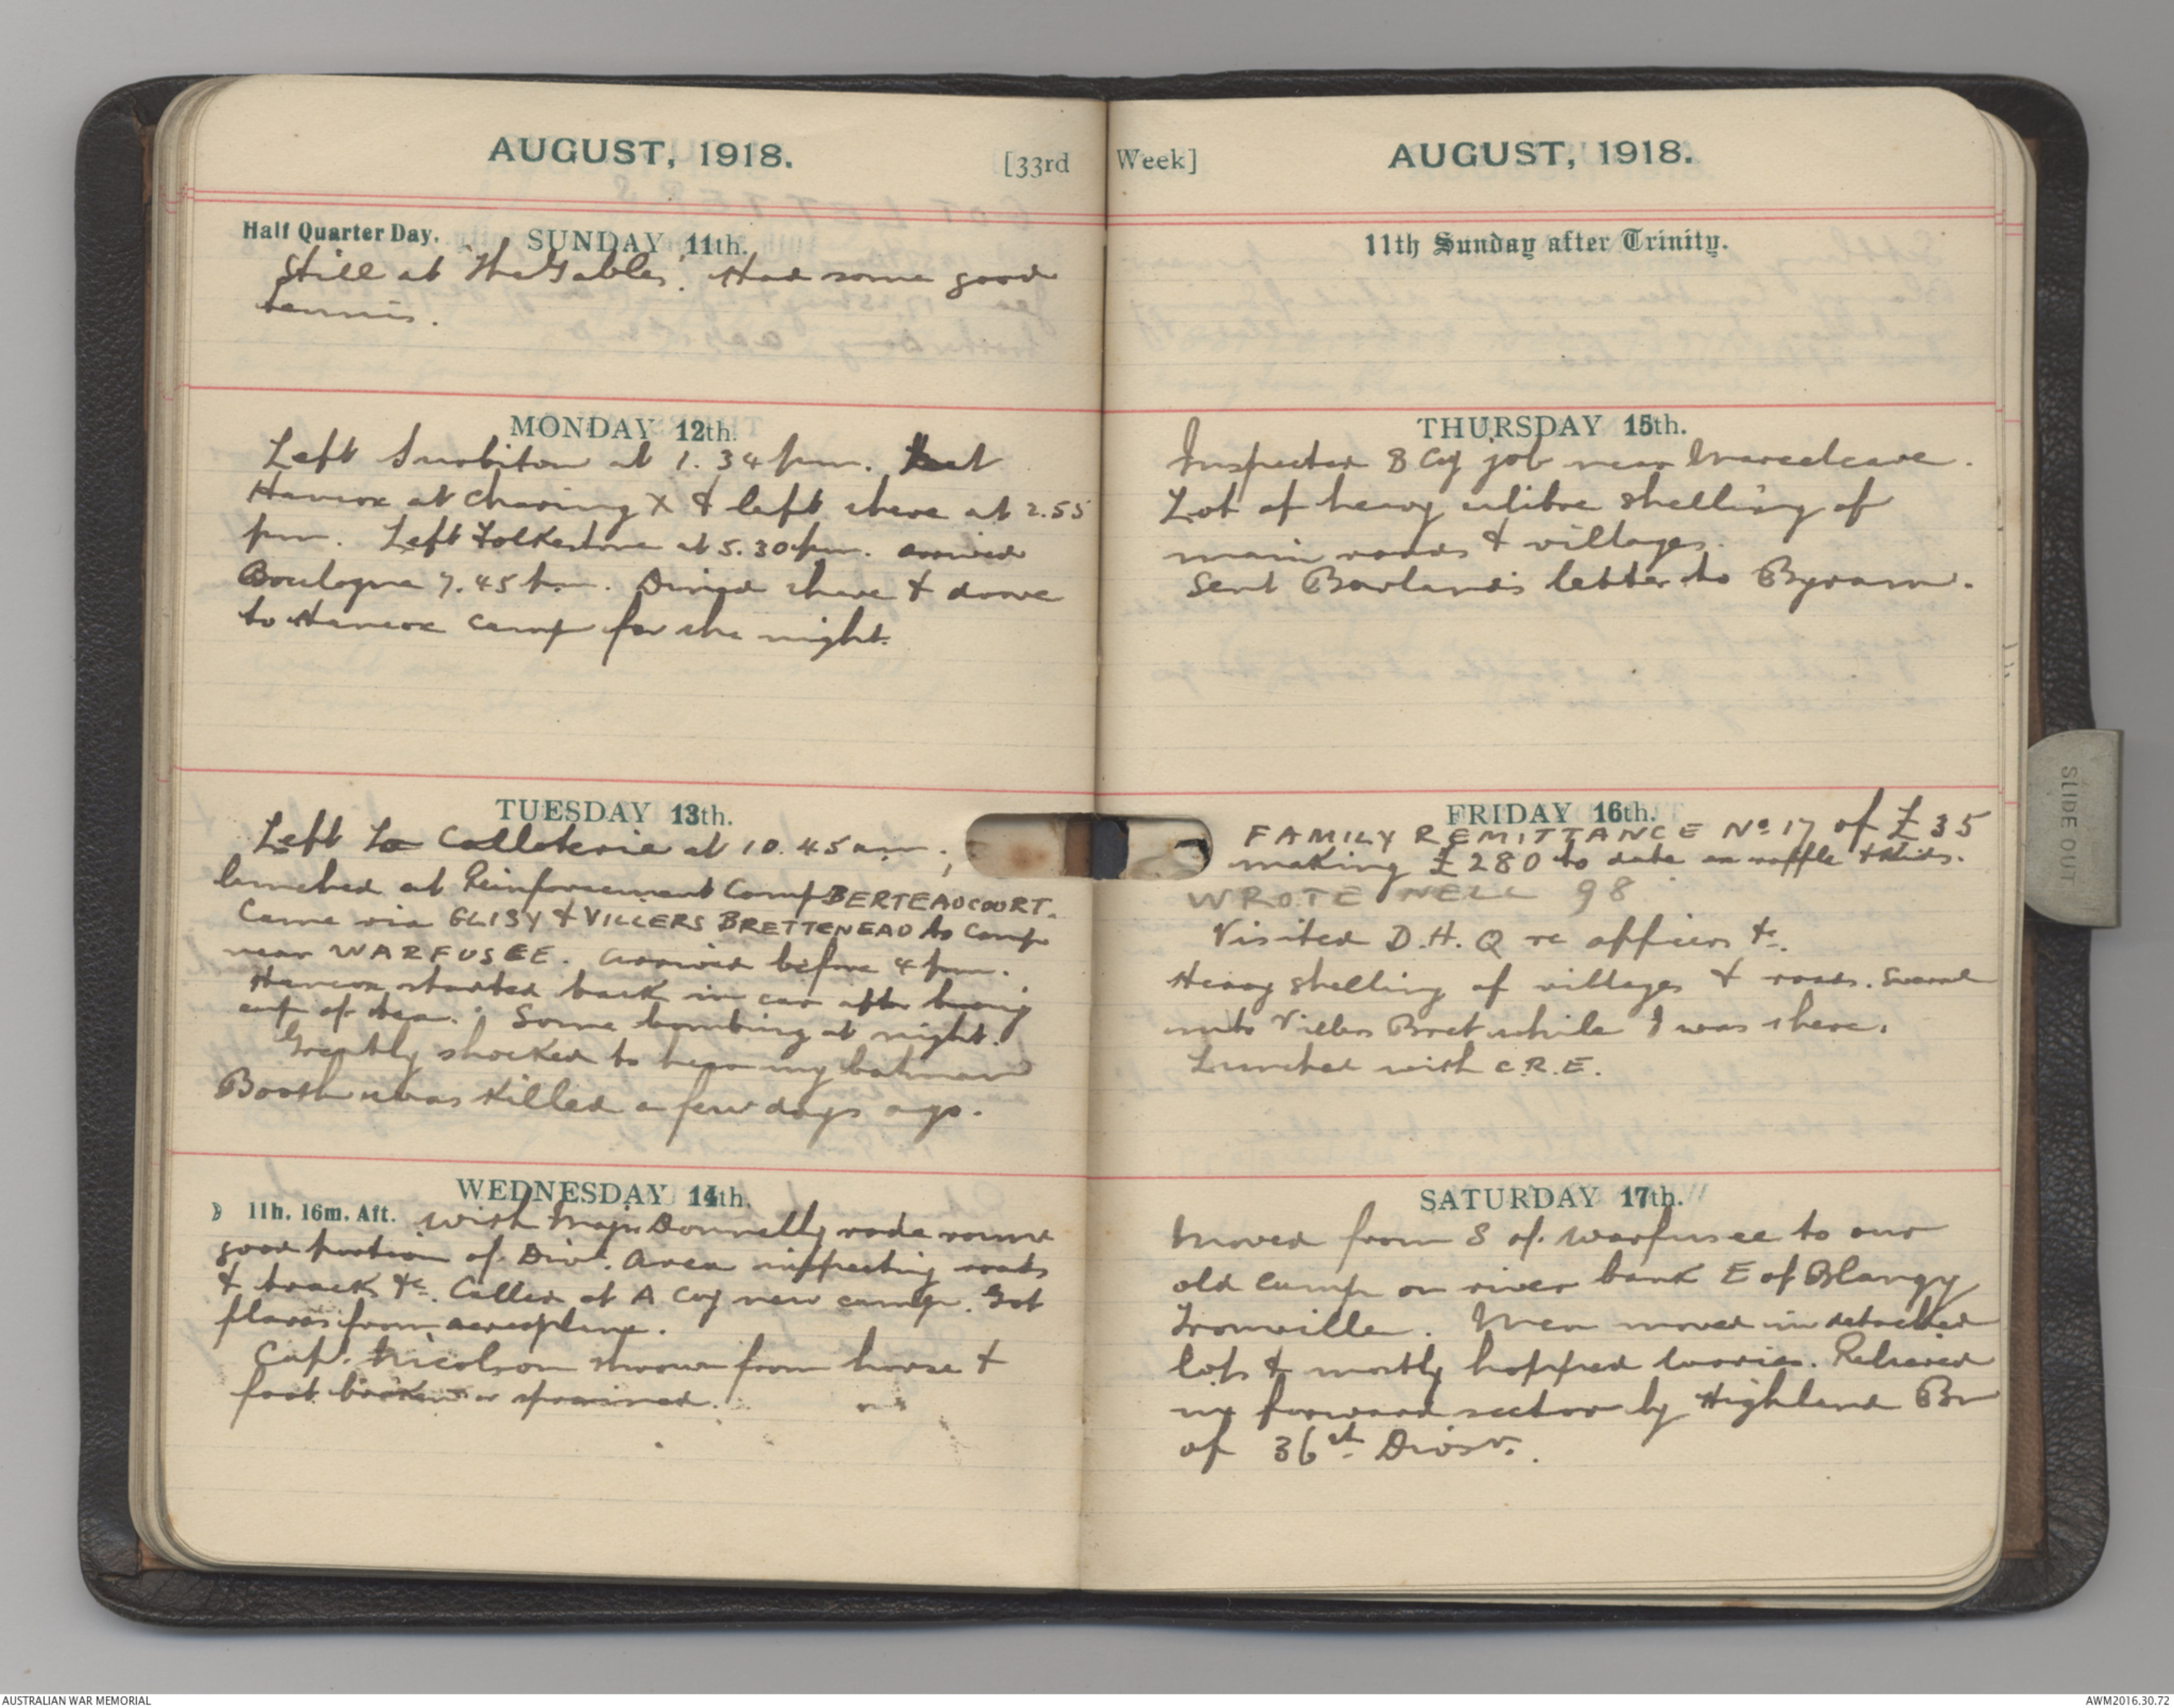 AUGUST, 1918. [33rd
Half Quarter Day. SUNDAY 11th.
Still at "The Gables". Had some good
tennis.
MONDAY 12th.
Left Surbiton at 1.34 pm.
Hancox at Charing X & left there at 2.55
pm. Left Folkestone at 5.30 pm. arrived
Boulogne 7.45 pm. Dined there & drove
to Hancox camp for the night.
TUESDAY 13th.
Left La Calloterie at 10.45 am.;
lunched at Reinforcement Camp BERTEAOCOURT.
Came via GLISY & VILLERS BRETTENEAO to camp
near WARFUSEE. Arrived before 4 pm.
Hancox started back in car after having
cup of tea. Some bombing at night.
Greatly shocked to hear my batman
Booth was killed a few days ago.
WEDNESDAY 14th.
☽ 11h. 16m. Aft. With Major Donnelly rode round
good portion of Divl. area inspecting roads
& track &c. Called at A Coy new camp. Got
flares from aeroplane.
Capt. Nicolson thrown from horse &
foot broken or sprained.
Week] AUGUST, 1918.
11th Sunday after Trinity.
THURSDAY 15th.
Inspected B Coy job near Marcelcave.
Lot of heavy calibre shelling of
main roads & villages.
Sent Borland's letter to Byram.
FRIDAY 16th.
FAMILY REMITTANCE No 17 of £35
making £280 to date & Kids.
WROTE NELL 98
Visited D.H.Q re officers &c.
Heavy shelling of villages & roads. Several
into Villers Bret while I was there.
Lunched with C.R.E.
SATURDAY 17th.
Moved from S of Warfusee to our
old camp on river bank E of Blangy
Tronville. Men moved in detached
lots & mostly hopped lorries. Relieved
in forward sector by Highland Bn
of 36th Divsn.
SLIDE OUT
AUSTRALIAN WAR MEMORIAL
AWM2016.30.72